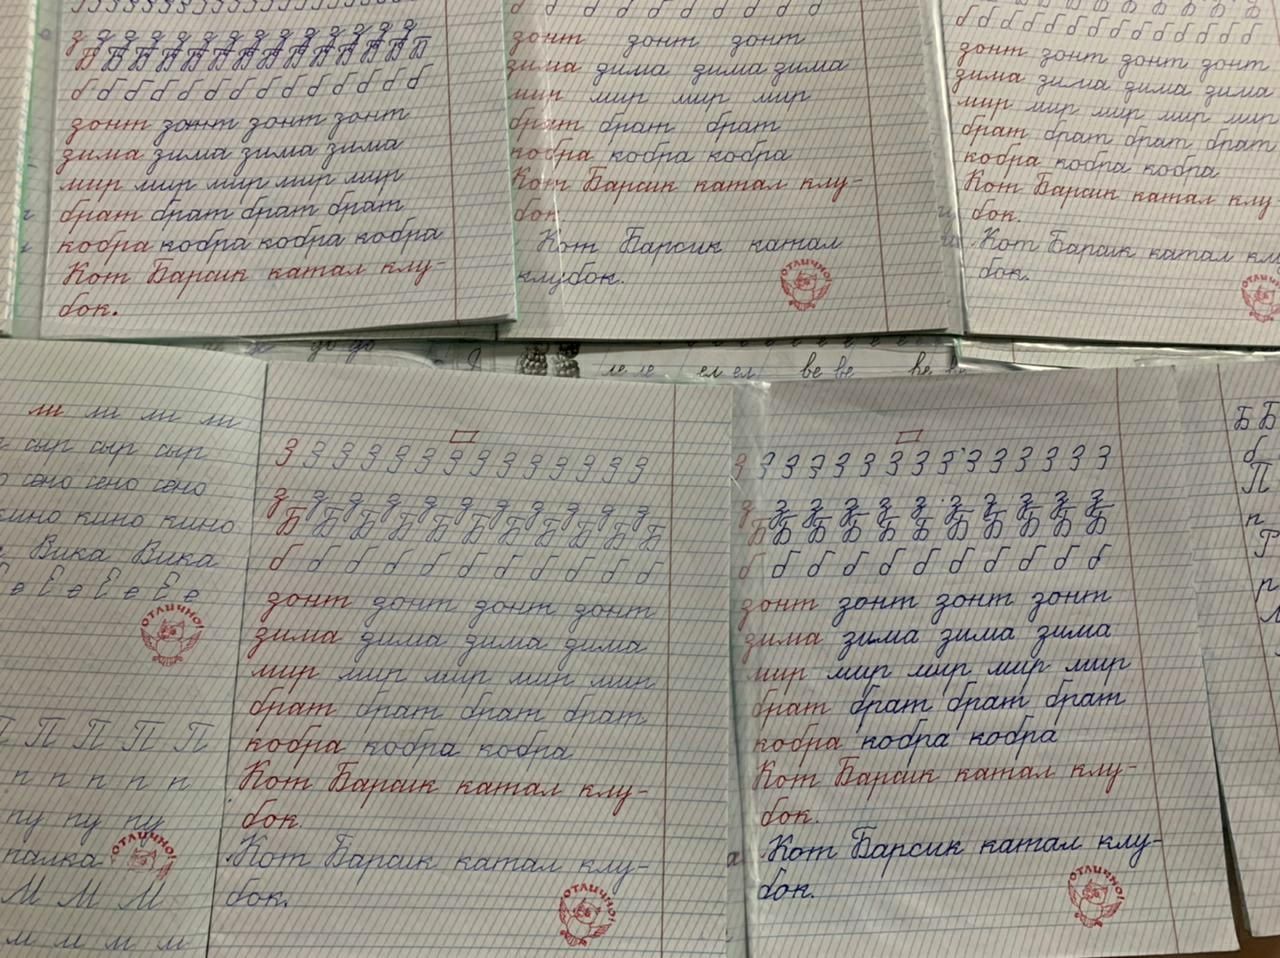 З З З З З З З З З З З З
з з з з з з з з з з з з з з
Б Б Б Б Б Б Б Б Б Б Б Б Б
б б б б б б б б б б б б б б
зонт зонт зонт зонт
зима зима зима зима
мир мир мир мир мир
брат брат брат брат
кобра кобра кобра кобра
Кот Барсик катал клу-
бок.
б б б б б б б б
зонт зонт зонт
зима зима зима зима
мир мир мир мир
брат брат брат
кобра кобра кобра
Кот Барсик катал клу-
бок.
Кот Барсик катал
клубок.
ОТЛИЧНО!
Б Б Б Б Б
б б б б б б б б б б б б б
зонт зонт зонт зонт
зима зима зима зима
мир мир мир мир мир
брат брат брат брат
кобра кобра кобра
Кот Барсик катал клу
бок.
Кот Барсик катал кл
бок.
ОТЛИЧНО!
до до
ле ле ел ел ве ве
ли ли ли ли
сыр сыр сыр
сено сено сено
кино кино кино
Вика Вика
Е е Е е Е е Е е
ОТЛИЧНО!
П П П П П
п п п п п
пу пу пу
палка
ОТЛИЧНО!
М М М
м м м м
З З З З З З З З З З З З З З
з з з з з з з з з з з
Б Б Б Б Б Б Б Б Б Б Б
б б б б б б б б б б б
зонт зонт зонт зонт
зима зима зима зима
мир мир мир мир мир
брат брат брат брат
кобра кобра кобра
Кот Барсик катал клу-
бок.
Кот Барсик катал клу-
бок.
ОТЛИЧНО!
З З З З З З З З З З З З З З З
з з з з з з з з з з з
Б Б Б Б Б Б Б Б Б Б Б
б б б б б б б б б б б
зонт зонт зонт зонт
зима зима зима зима
мир мир мир мир мир
брат брат брат брат
кобра кобра кобра
Кот Барсик катал клу-
бок.
Кот Барсик катал клу-
бок.
ОТЛИЧНО!
Б Б
б
П
п
Р
р